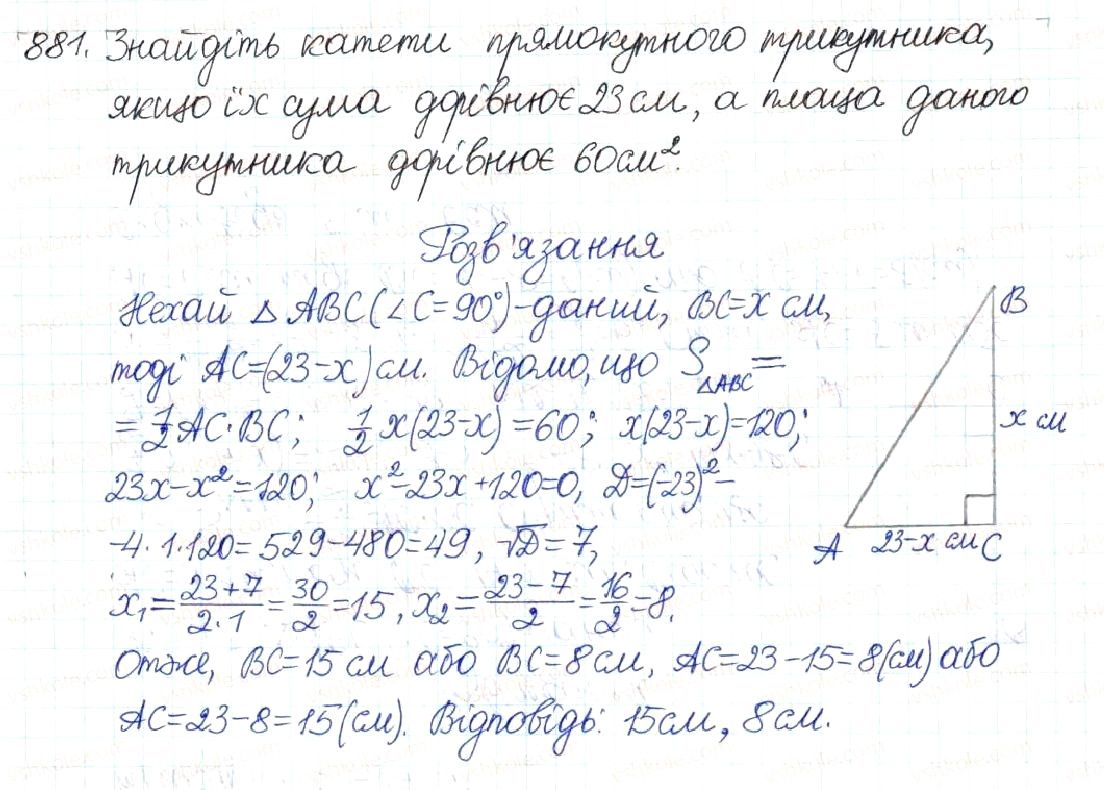 881. Знайдіть катети прямокутного трикутника,
якщо їх сума дорівнює 23 см, а площа даного
трикутника дорівнює 60 см².
Розв'язання
Нехай △ ABC (∠C=90°)-даний, BC=x см,
тоді AC=(23-x) см. Відомо, що S△ABC=
=1/2 AC·BC; 1/2 x(23-x)=60; x(23-x)=120;
23x-x²=120; x²-23x+120=0, D=(-23)²-
-4·1·120=529-480=49, √D=7,
x₁=(23+7)/(2·1)=30/2=15, x₂=(23-7)/2=16/2=8.
Отже, BC=15 см або BC=8 см, AC=23-15=8(см) або
AC=23-8=15(см). Відповідь: 15 см, 8 см.
B
x см
A 23-x см C